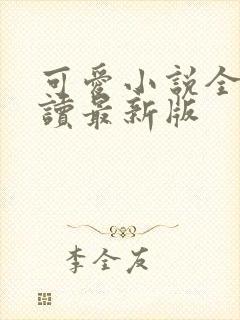 可愛小說全
讀最新版
李全友